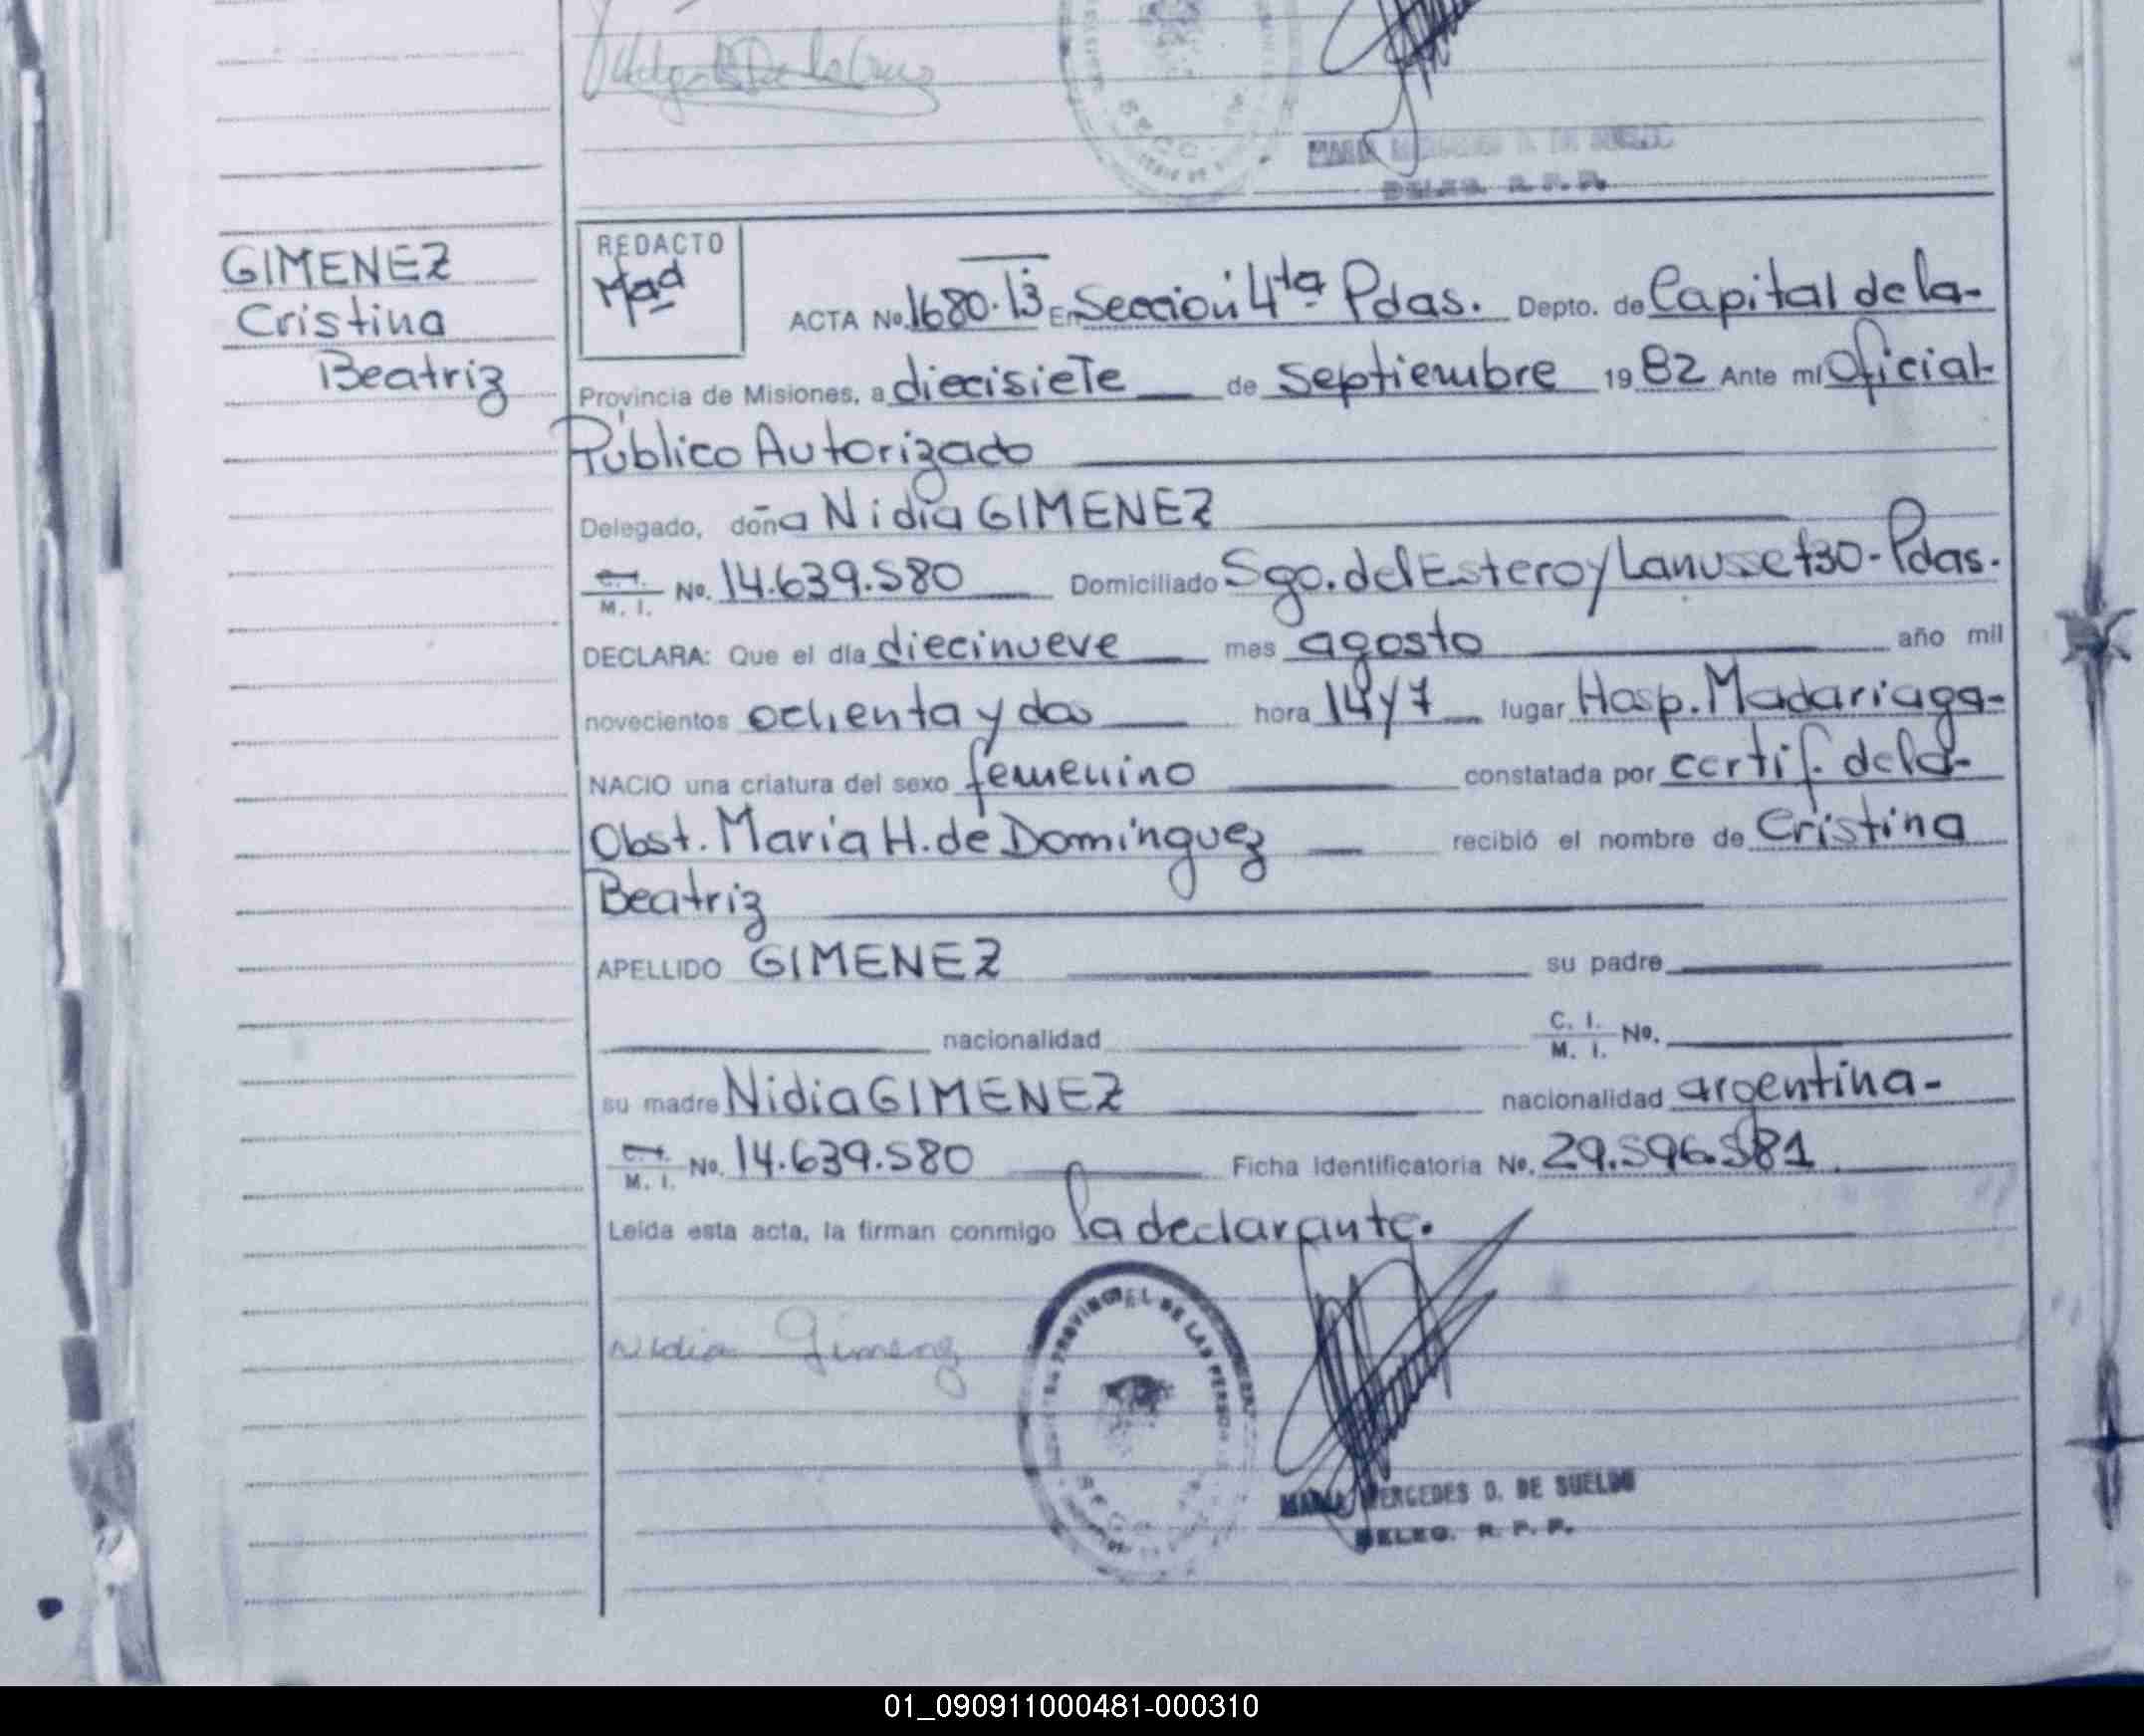 MARIA MERCEDES D. DE SUELDO
DELEG. R. P. P.
GIMENEZ
Cristina
Beatriz
REDACTO
ACTA No. 1680. 13 En Sección 4ta Pdas. Depto. de Capital de la-
Provincia de Misiones, a diecisiete de septiembre 1982 Ante mí Oficial-
Público Autorizado
Delegado, doña Nidia GIMENEZ
C. I. / M. I. No. 14.639.580 Domiciliado Sgo. del Estero y Lanusse 730 - Pdas.
DECLARA: Que el día diecinueve mes agosto año mil
novecientos ochenta y dos hora 14 y 7 lugar Hosp. Madariaga-
NACIO una criatura del sexo femenino constatada por certif. de la-
Obst. María H. de Domínguez recibió el nombre de Cristina
Beatriz
APELLIDO GIMENEZ su padre
nacionalidad C. I. / M. I. No.
su madre Nidia GIMENEZ nacionalidad argentina-
C. I. / M. I. No. 14.639.580 Ficha Identificatoria No. 29.596.581
Leída esta acta, la firman conmigo la declarante.
Nidia Gimenez
MARIA MERCEDES D. DE SUELDO
DELEG. R. P. P.
01_090911000481-000310